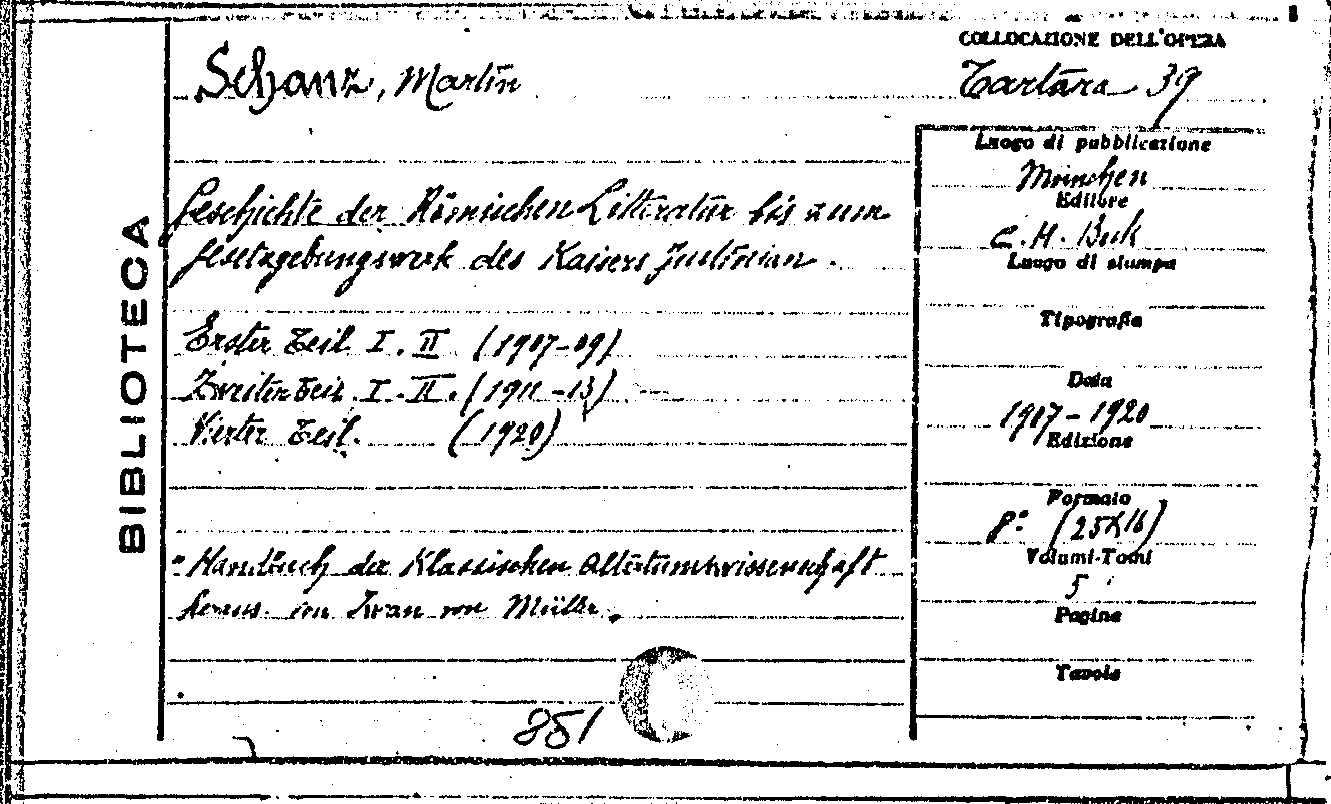 COLLOCAZIONE DELL'OPERA
Schanz, Martin
Tartara 39
BIBLIOTECA
Geschichte der Römischen Litteratur bis zum
Gesetzgebungswerk des Kaisers Justinian.
Erster Teil I. II (1907-09)
Zweiter Teil I. II. (1911-13)
Vierter Teil. (1920)
"Handbuch der Klassischen Altertumswissenschaft
heraus. von Iwan von Müller"
851
Luogo di pubblicazione
München
Editore
C. H. Beck
Luogo di stampa
Tipografia
Data
1907-1920
Edizione
Formato
8° (25X16)
Volumi-Tomi
5
Pagine
Tavole